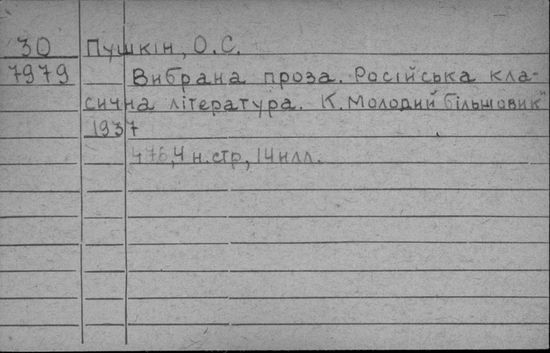 30 Пушкін, О.С.
7979 Вибрана проза. Російська кла-
сична література. К. „Молодий більшовик"
1937
476, 4 н.стр, 14 илл.